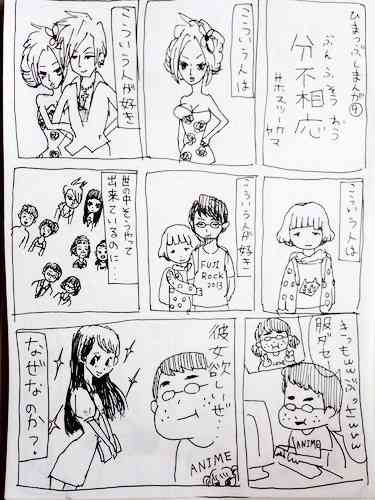 ひまつぶしまんが④
ぶんふそうおう
分不相応
こういう人は
こういう人が好き
こういう人は
こういう人が好き
FUJI
ROCK
2013
世の中そうやって
出来ているのに…
きっもwwぶっさww
服ダセ
ANIME
彼女欲しいぜ…
ANIME
なぜなのか?